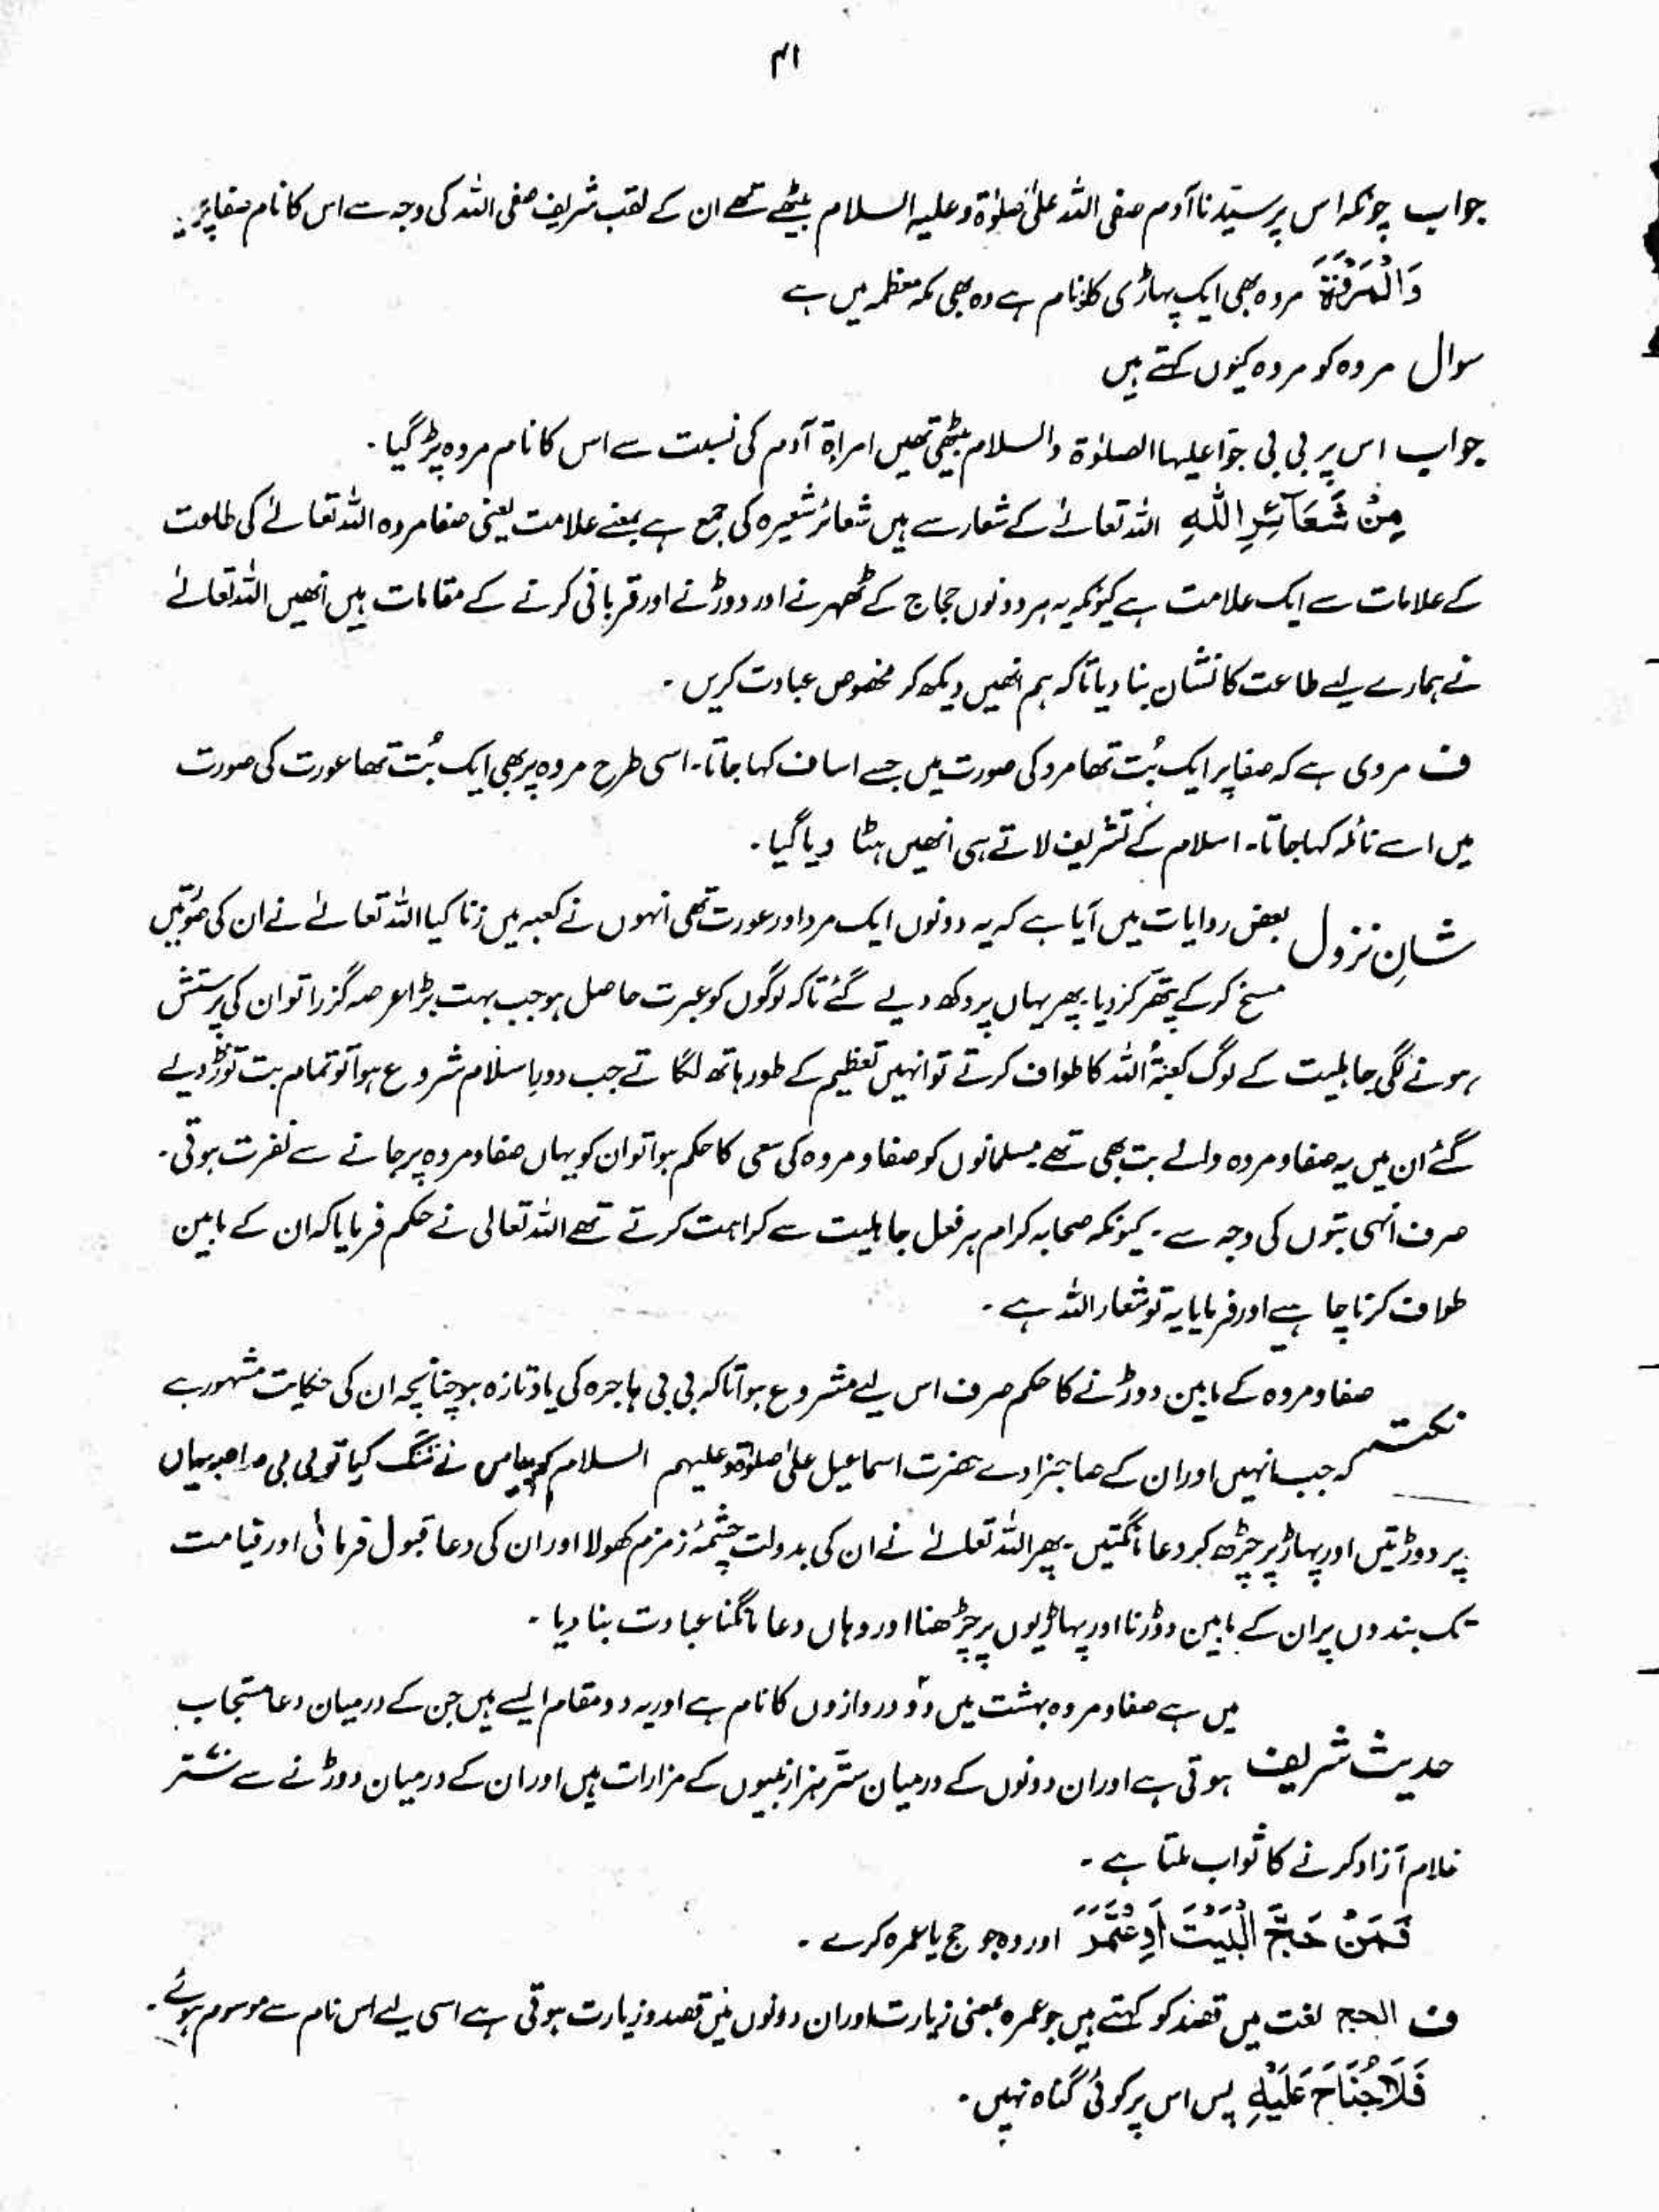 ۴۱
جواب چونکہ اس پر سیّدنا آدم صفی اللہ علیٰ صلوٰۃ و علیہ السلام بیٹھے تھے ان کے لقب شریف صفی اللہ کی وجہ سے اس کا نام صفا پڑ
وَالْمَرْوَۃَ مروہ بھی ایک پہاڑی کا نام ہے وہ بھی مکہ معظمہ میں ہے
سوال مروہ کو مروہ کیوں کہتے ہیں
جواب اس پر بی بی حوّا علیہا الصلوٰۃ والسلام بیٹھی تھیں امراۃ آدم کی نسبت سے اس کا نام مروہ پڑ گیا ۔
مِنْ شَعَآئِرِ اللّٰہِ اللہ تعالےٰ کے شعار سے ہیں شعائر شعیرہ کی جمع ہے بمعنے علامت یعنی صفا مروہ اللہ تعالےٰ کی طاعت
کے علامات سے ایک علامت ہے کیونکہ یہ ہر دونوں حجاج کے ٹھہرنے اور دوڑنے اور قربانی کرنے کے مقامات ہیں انھیں اللہ تعالےٰ
نے ہمارے لیے طاعت کا نشان بنا دیا تاکہ ہم انھیں دیکھ کر مخصوص عبادت کریں ۔
ف مروی ہے کہ صفا پر ایک بُت تھا مرد کی صورت میں جسے اساف کہا جاتا۔ اسی طرح مروہ پر بھی ایک بُت تھا عورت کی صورت
میں اسے نائلہ کہا جاتا۔ اسلام کے تشریف لاتے ہی انھیں ہٹا دیا گیا ۔
شانِ نزول بعض روایات میں آیا ہے کہ یہ دونوں ایک مرد اور عورت تھی انہوں نے کعبہ میں زنا کیا اللہ تعالےٰ نے ان کی صورتیں
مسخ کرکے پتھر کر دیا پھر یہاں پر رکھ دیے گئے تاکہ لوگوں کو عبرت حاصل ہو جب بہت بڑا عرصہ گزرا تو ان کی پرستش
ہونے لگی جاہلیت کے لوگ کعبۃُ اللہ کا طواف کرتے تو انہیں تعظیم کے طور ہاتھ لگاتے جب دورِ اسلام شروع ہوا تو تمام بت توڑ دیے
گئے ان میں یہ صفا و مروہ والے بت بھی تھے مسلمانوں کو صفا و مروہ کی سعی کا حکم ہوا تو ان کو یہاں صفا و مروہ پر جانے سے نفرت ہوتی۔
صرف انہی بتوں کی وجہ سے ۔ کیونکہ صحابہ کرام ہر فعل جاہلیت سے کراہت کرتے تھے اللہ تعالی نے حکم فرمایا کہ ان کے مابین
طواف کرنا چاہیے اور فرمایا یہ تو شعار اللہ ہے ۔
صفا و مروہ کے مابین دوڑنے کا حکم صرف اس لیے مشروع ہوا تاکہ بی بی ہاجرہ کی یاد تازہ ہو چنانچہ ان کی حکایت مشہور ہے
نکتہ کہ جب انہیں اور ان کے صاحبزادے حضرت اسماعیل علیٰ صلوٰۃ و علیہم السلام کو پیاس نے تنگ کیا تو بی بی صاحبہ یہاں
پر دوڑیتیں اور پہاڑ پر چڑھ کر دعا مانگتیں ۔ پھر اللہ تعالےٰ نے ان کی بدولت چشمۂ زمزم کھولا اور ان کی دعا قبول فرمائی اور قیامت
تک بندوں پر ان کے مابین دوڑنا اور پہاڑیوں پر چڑھنا اور وہاں دعا مانگنا عبادت بنا دیا ۔
میں ہے صفا و مروہ بہشت میں دو دروازوں کا نام ہے اور یہ دو مقام ایسے ہیں جن کے درمیان دعا مستجاب
حدیث شریف ہوتی ہے اور ان دونوں کے درمیان ستّر ہزار نبیوں کے مزارات ہیں اور ان کے درمیان دوڑنے سے ستّر
غلام آزاد کرنے کا ثواب ملتا ہے ۔
فَمَنْ حَجَّ الْبَیْتَ اَوِ عْتَمَرَ اور وہ جو حج یا عمرہ کرے ۔
ف الحج لغت میں قصد کو کہتے ہیں جو عمرہ بمعنی زیارت اور ان دونوں میں قصد و زیارت ہوتی ہے اسی لیے اس نام سے موسوم ہوئے ۔
فَلَا جُنَاحَ عَلَیْہِ پس اس پر کوئی گناہ نہیں ۔